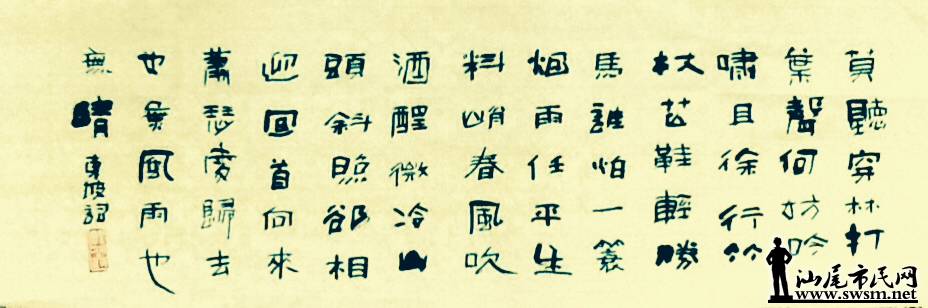 莫聽穿林打
葉聲何妨吟
嘯且徐行竹
杖芒鞋輕勝
馬誰怕一蓑
烟雨任平生
料峭春風吹
酒醒微冷山
頭斜照卻相
迎回首向來
蕭瑟處歸去
也無風雨也
無晴 東坡詞
汕尾市民网
www.swsm.net